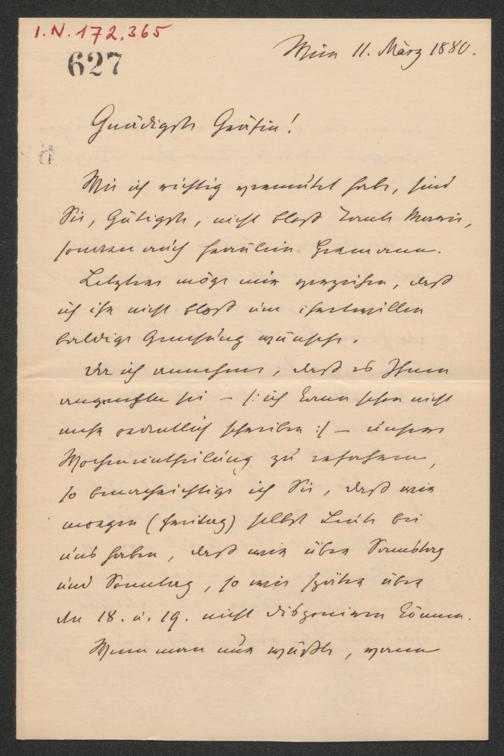 I.N. 172.365
627
Wien 11. März 1880.
Gnädigste Gräfin!
Wie ich richtig vermuthet habe, sind
Sie, Gütigste, nicht bloß Tante
sondern auch Fräulein
Letztere möge mir verzeihen, daß
ich ihr nicht bloß um ihretwillen
baldige Genesung wünsche.
Da ich annehme, daß es Ihnen
angenehm sei – /: ich kann schon nicht
mehr ordentlich schreiben :/ – unsere
Wocheneintheilung zu erfahren,
so benachrichtige ich Sie, daß wir
morgen (Freitag) selbst Leute bei
uns haben, daß wir über Sonnabend
und Sonntag, so wie später über
den 18. u. 19. nicht disponiren können.
Wenn man nun wüßte, wann